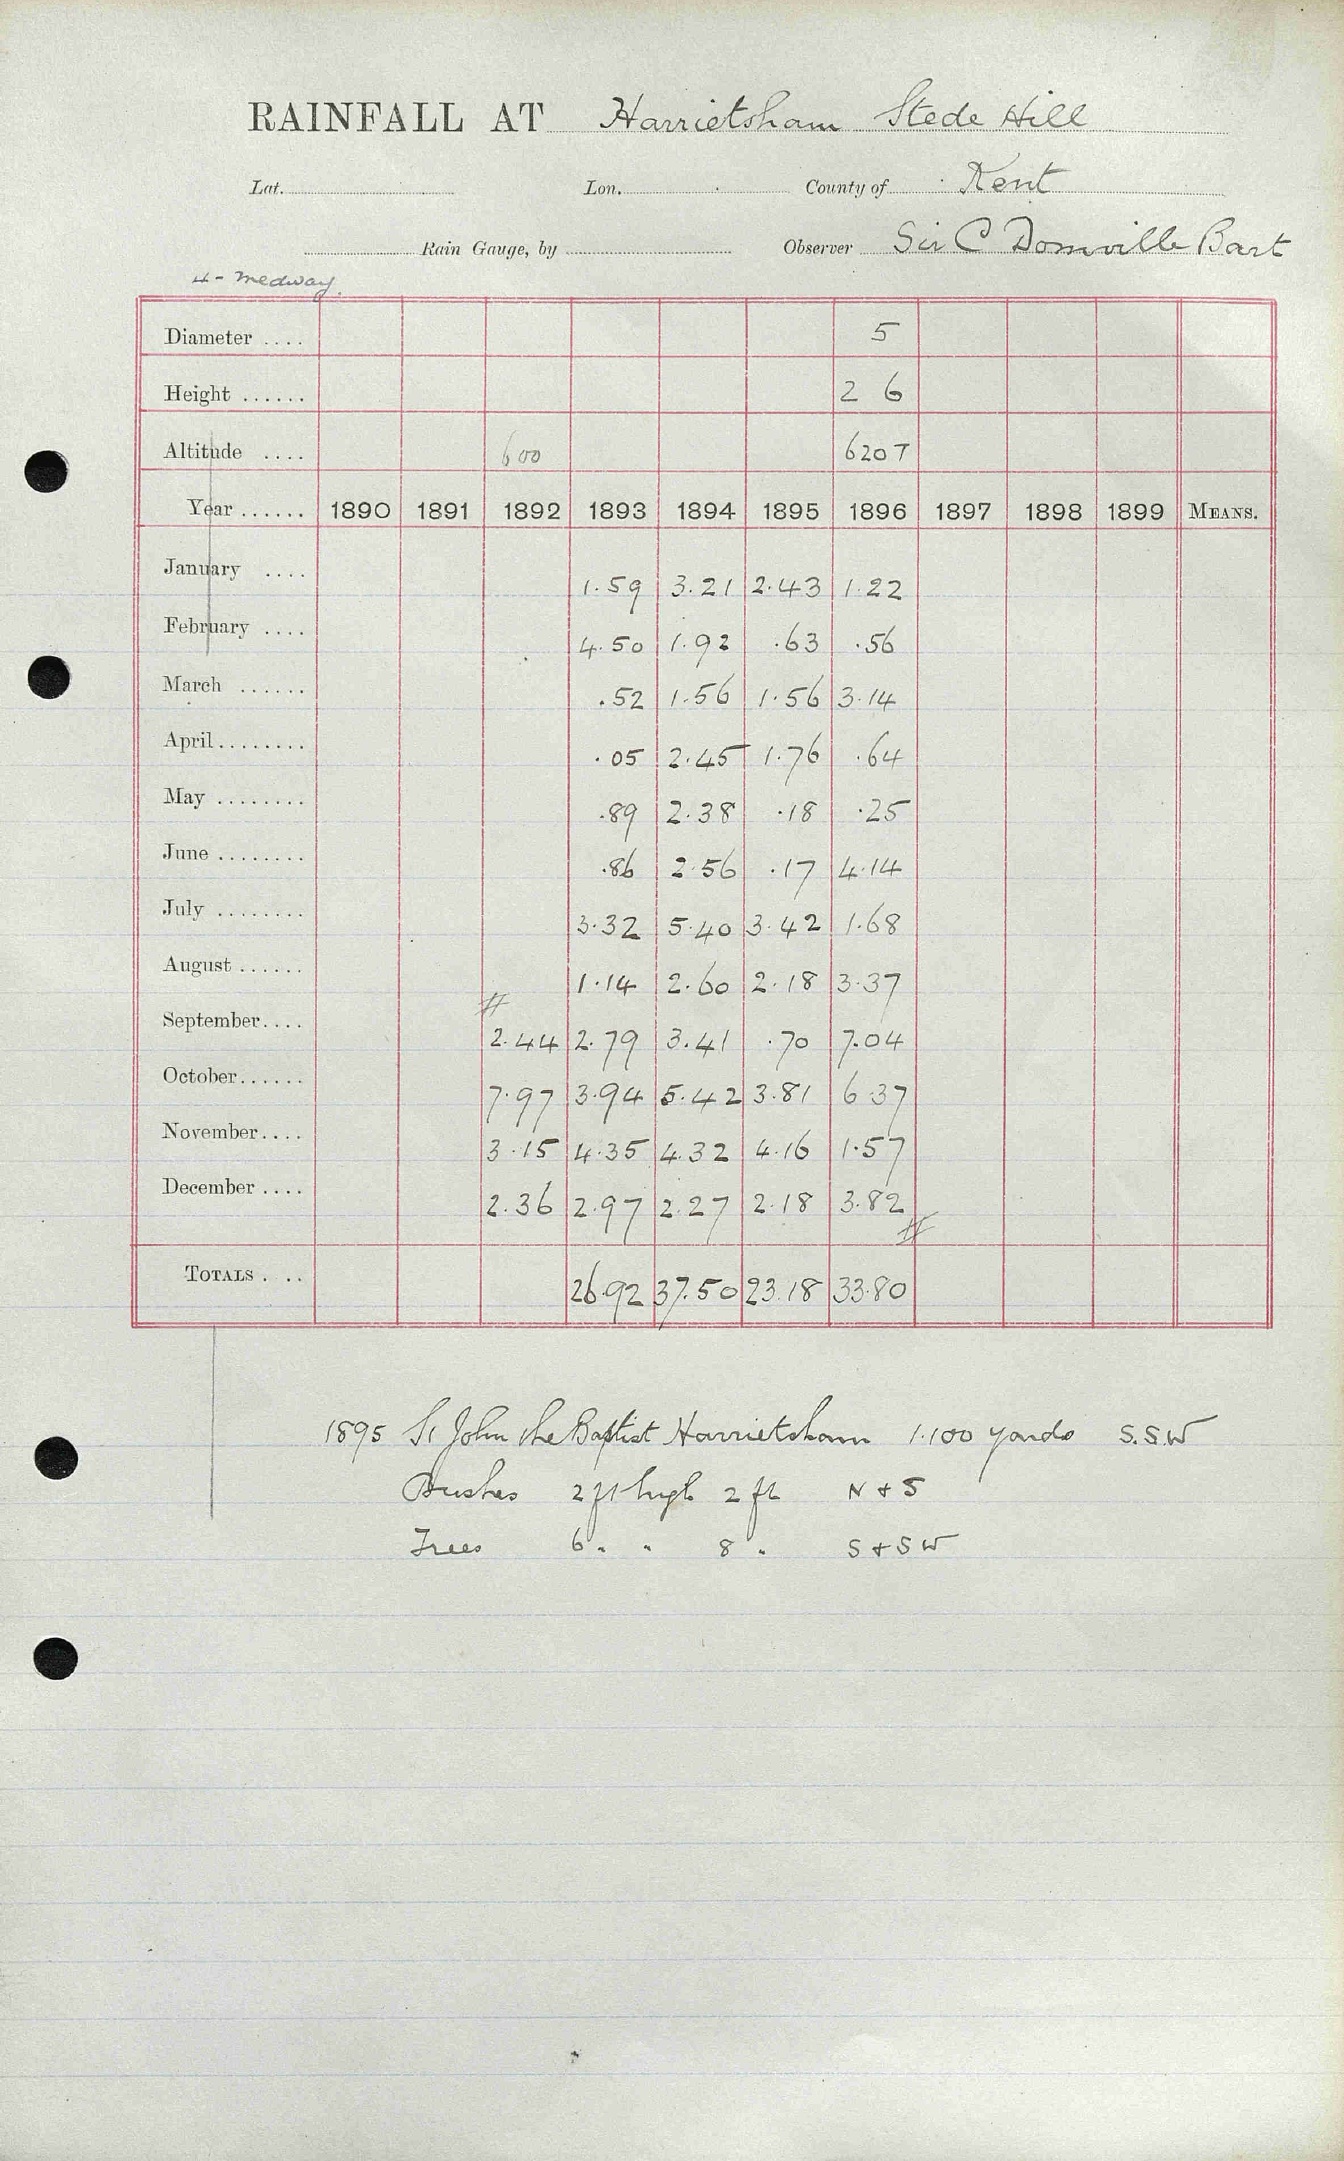 RAINFALL AT Harrietsham Stede Hill
Lat. Lon. County of Kent
Rain Gauge, by Observer Sir C Domville Bart
4 - Medway
Diameter .... 5
Height ...... 2 6
Altitude .... 600 620 T
Year ...... 1890 1891 1892 1893 1894 1895 1896 1897 1898 1899 MEANS.
January .... 1.59 3.21 2.43 1.22
February .... 4.50 1.92 .63 .56
March ...... .52 1.56 1.56 3.14
April ........ .05 2.45 1.76 .64
May ........ .89 2.38 .18 .25
June ........ .86 2.56 .17 4.14
July ........ 3.32 5.40 3.42 1.68
August ...... 1.14 2.60 2.18 3.37
September .... 2.44 2.79 3.41 .70 7.04
October ...... 7.97 3.94 5.42 3.81 6.37
November .... 3.15 4.35 4.32 4.16 1.57
December .... 2.36 2.97 2.27 2.18 3.82
TOTALS . .. 26.92 37.50 23.18 33.80
1895 St John the Baptist Harrietsham 1.100 yards S.S.W
Bushes 2 ft high 2 ft N & S
Trees 6 " " 8 " S & SW